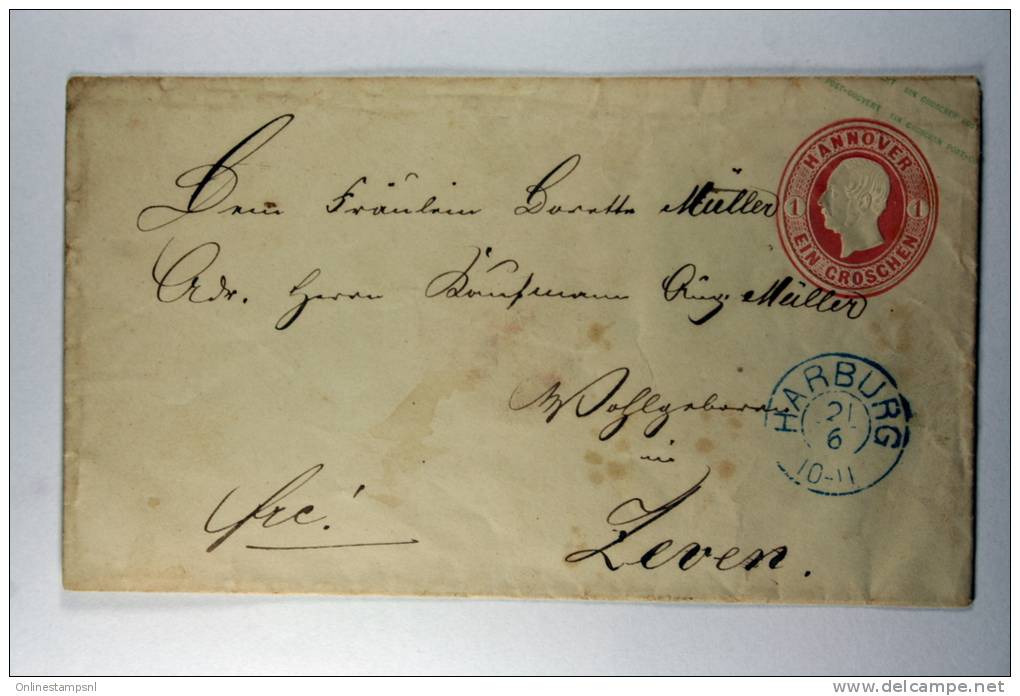 POST-COUVERT EIN GROSCHEN
EIN GROSCHEN POST-
HANNOVER
1 1
EIN GROSCHEN
Dem Fräulein Dorette Müller
Adr. Herrn Kaufmann Aug. Müller
Wohlgeboren
in
frc!
Zeven.
HARBURG
21
6
10-11
Onlinestampsnl
www.delcampe.net